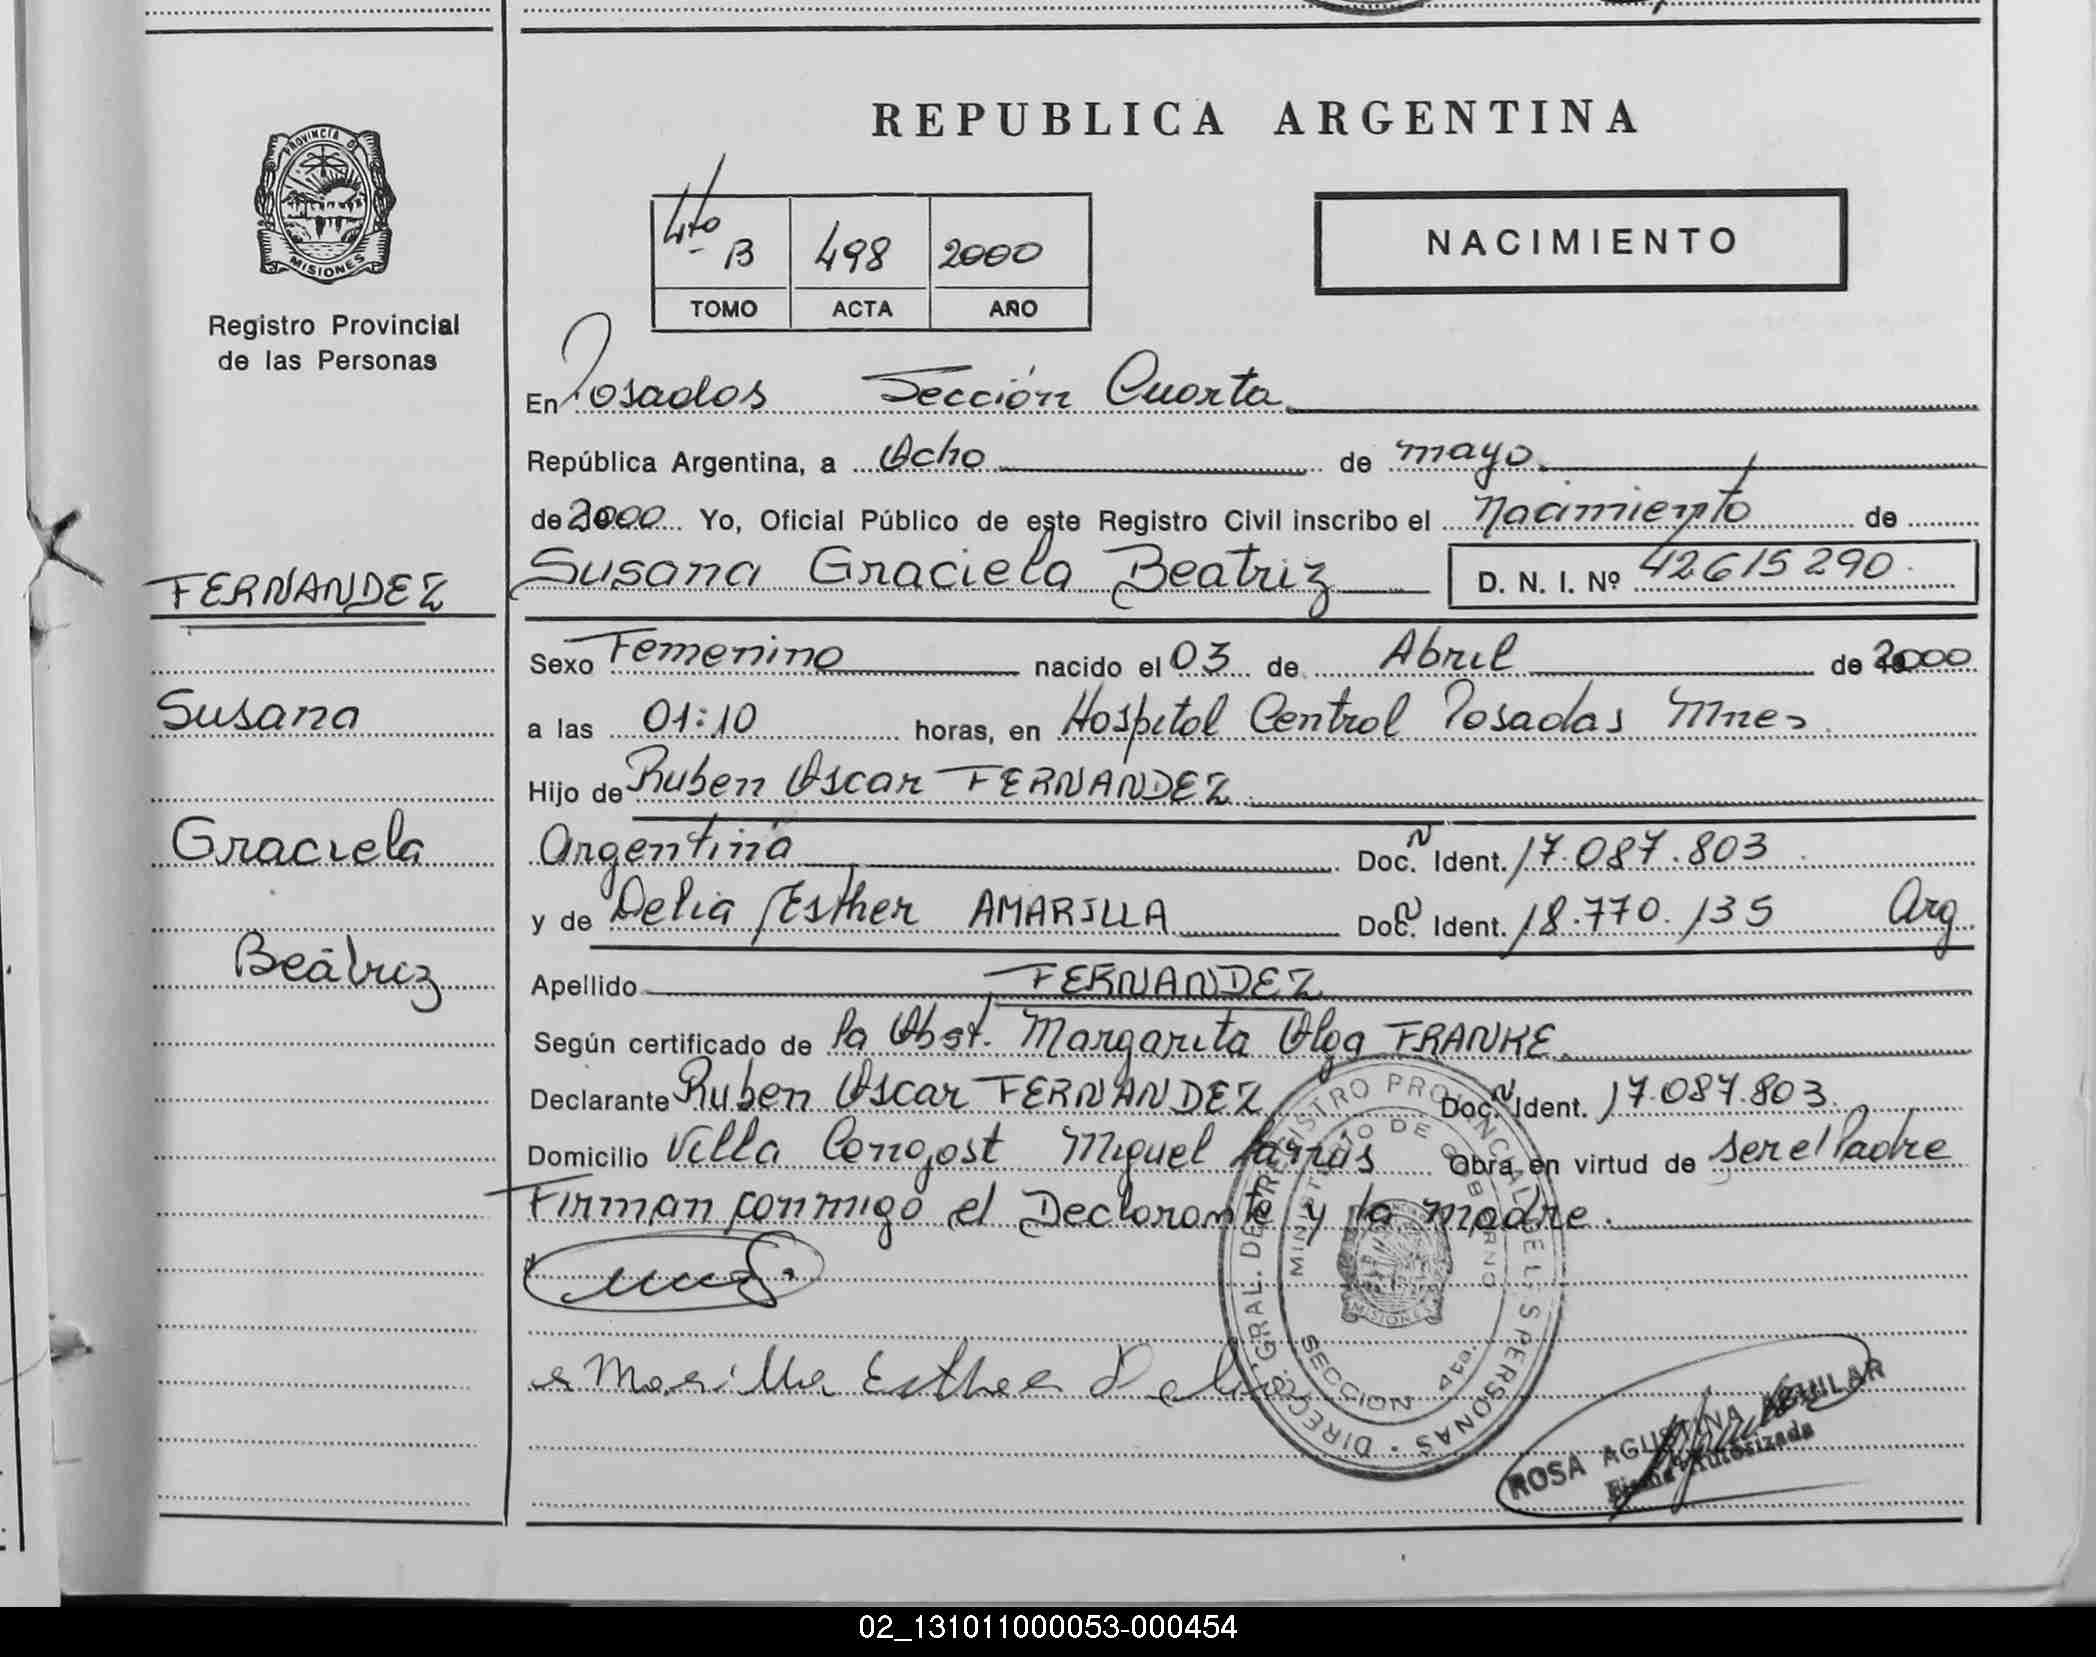 PROVINCIA DE
MISIONES
Registro Provincial
de las Personas
FERNANDEZ
Susana
Graciela
Beatriz
REPUBLICA ARGENTINA
4to B 498 2000
TOMO ACTA AÑO
NACIMIENTO
En Posadas Sección Cuarta
República Argentina, a Ocho de mayo
de 2000 Yo, Oficial Público de este Registro Civil inscribo el Nacimiento de
Susana Graciela Beatriz D. N. I. Nº 42615290
Sexo Femenino nacido el 03 de Abril de 2000
a las 01:10 horas, en Hospital Central Posadas Mnes
Hijo de Ruben Oscar FERNANDEZ
Argentina Doc. N Ident. 17.087.803
y de Delia Esther AMARILLA Doc. N Ident. 18.770.135 Arg
Apellido FERNANDEZ
Según certificado de la Obst. Margarita Olga FRANKE
Declarante Ruben Oscar FERNANDEZ Doc. N Ident. 17.087.803
Domicilio Villa Miguel Obra en virtud de ser el Padre
Firman conmigo el Declarante y la madre.
aMarilla Esther Delia
DIRECC. GRAL. DEL REGISTRO PROVINCIAL DE LAS PERSONAS
MINISTERIO DE GOBIERNO
MISIONES
SECCION 4ta.
ROSA AGUSTINA AGUILAR
Firma Autorizada
02_131011000053-000454